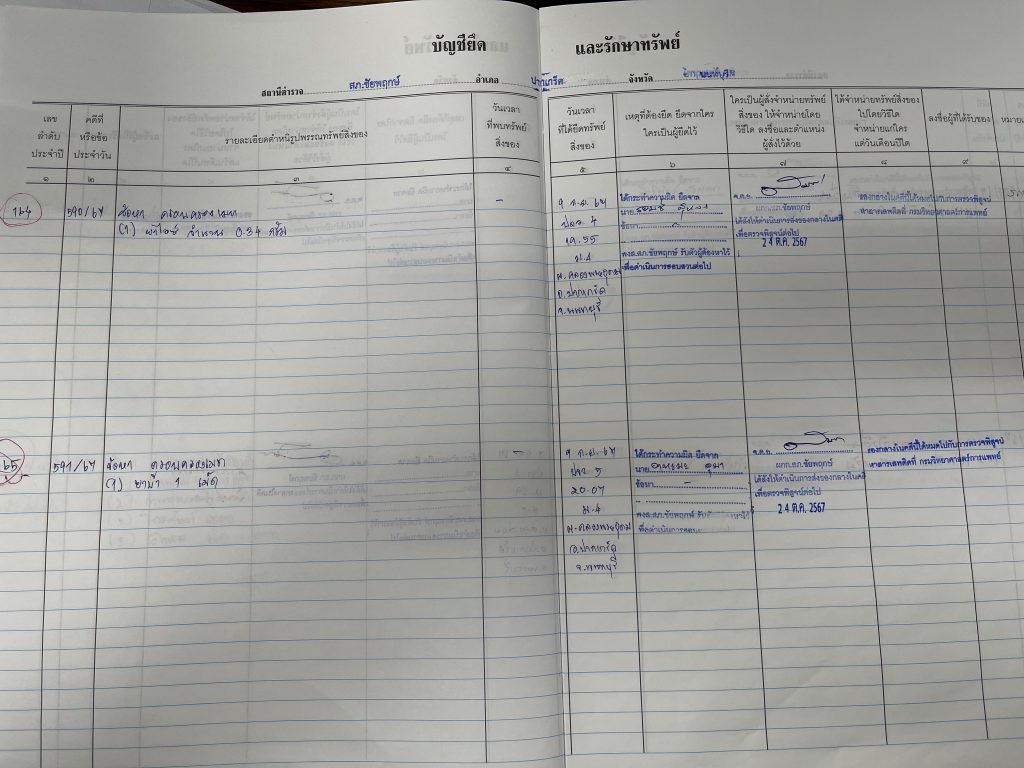 บัญชียึด และรักษาทรัพย์
สถานีตำรวจ สภ.ชัยพฤกษ์ อำเภอ ปากเกร็ด จังหวัด
เลขลำดับประจำปี
คดีที่หรือข้อประจำวัน
รายละเอียดตำหนิรูปพรรณทรัพย์สิ่งของ
วันเวลาที่พบทรัพย์สิ่งของ
วันเวลาที่ได้ยึดทรัพย์สิ่งของ
เหตุที่ต้องยึด ยึดจากใคร ใครเป็นผู้ยึดไว้
ใครเป็นผู้สั่งจำหน่ายทรัพย์สิ่งของ ให้จำหน่ายโดยวิธีใด ลงชื่อและตำแหน่งผู้สั่งไว้ด้วย
ได้จำหน่ายทรัพย์สิ่งของไปโดยวิธีใด จำหน่ายแก่ใคร แต่วันเดือนปีใด
ลงชื่อผู้ที่ได้รับของ
๑ ๒ ๓ ๔ ๕ ๖ ๗ ๘ ๙
164 590/67 ข้อหา ครอบครองยาเสพ
(1) ยาไอซ์ จำนวน 0.34 กรัม
-
9 ก.ย. 67
ปจว. 4
19.55
ม.4
ต.คลองพระอุดม
อ.ปากเกร็ด
จ.นนทบุรี
ได้กระทำความผิด ยึดจาก
นาย
ข้อหา
พงส.สภ.ชัยพฤกษ์ รับตัวผู้ต้องหาไว้
เพื่อดำเนินการสอบสวนต่อไป
พ.ต.อ.
ผกก.สภ.ชัยพฤกษ์
ได้สั่งให้ดำเนินการส่งของกลางในคดี
เพื่อตรวจพิสูจน์ต่อไป
2 4 ต.ค. 2567
ของกลางในคดีนี้ได้หมดไปกับการตรวจพิสูจน์
หาสารเสพติดที่ กรมวิทยาศาสตร์การแพทย์
591/67 ข้อหา ครอบครองยาเสพ
(1) ยาบ้า 1 เม็ด
-
9 ก.ย. 67
ปจว. 5
20.07
ม.4
ต.คลองพระอุดม
อ.ปากเกร็ด
จ.นนทบุรี
ได้กระทำความผิด ยึดจาก
นาย
ข้อหา -
พงส.สภ.ชัยพฤกษ์ รับ
เพื่อดำเนินการสอบ
พ.ต.อ.
ผกก.สภ.ชัยพฤกษ์
ได้สั่งให้ดำเนินการส่งของกลางในคดี
เพื่อตรวจพิสูจน์ต่อไป
2 4 ต.ค. 2567
ของกลางในคดีนี้ได้หมดไปกับการตรวจพิสูจน์
หาสารเสพติดที่ กรมวิทยาศาสตร์การแพทย์